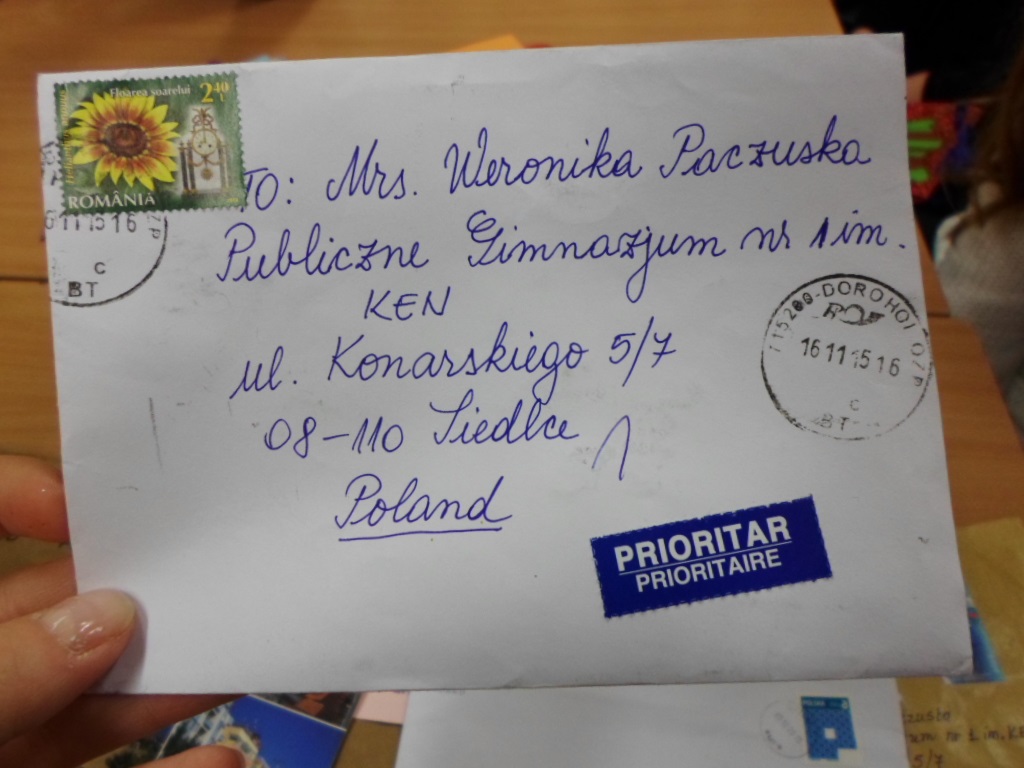 Floarea soarelui
2.40 L
ROMÂNIA
TO: Mrs. Weronika Paczuska
Publiczne Gimnazjum nr 1 im.
KEN
ul. Konarskiego 5/7
08-110 Siedlce
Poland
16 11 15 16
C
BT
715200-DOROHOI O.Z.P
16 11 15 16
C
BT
PRIORITAR
PRIORITAIRE
zuska
um nr 1 im. KE
5/7